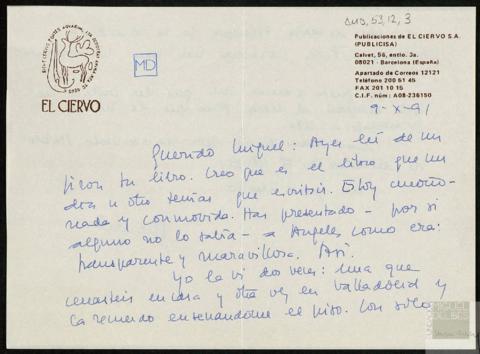 CMD, 53, 12, 3
Publicaciones de EL CIERVO S.A.
(PUBLICISA)
Calvet, 56, entlo. 3a.
08021 - Barcelona (España)
Apartado de Correos 12121
Teléfono 200 51 45
FAX 201 10 15
C.I.F. núm: A08-236150
MD
EL CIERVO
9-X-91
Querido Miguel: Ayer leí de un
tirón tu libro. Creo que es el libro que un
día u otro tenías que escribir. Estoy emocio-
nada y conmovida. Has presentado - por si
alguno no lo sabía - a Angeles como era:
transparente y maravillosa. Así.
Yo la vi dos veces: una que
cenasteis en casa y otra vez en Valladolid y
la recuerdo enseñándome el piso. Con solo
MIGUEL DELIBES